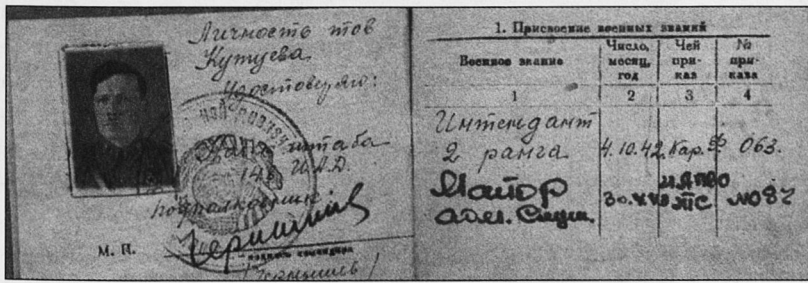 Личность тов
Кутуева
Удостоверяю:
Нач. штаба
146 И.А.Д.
подполковник
М. П.
подпись командира
1. Присвоение военных званий
Военное звание
Число, месяц, год
Чей приказ
№ приказа
1 2 3 4
Интендант
2 ранга 4.10.42 Кар. Ф 063.
Майор
адм. Служ.
№ 087